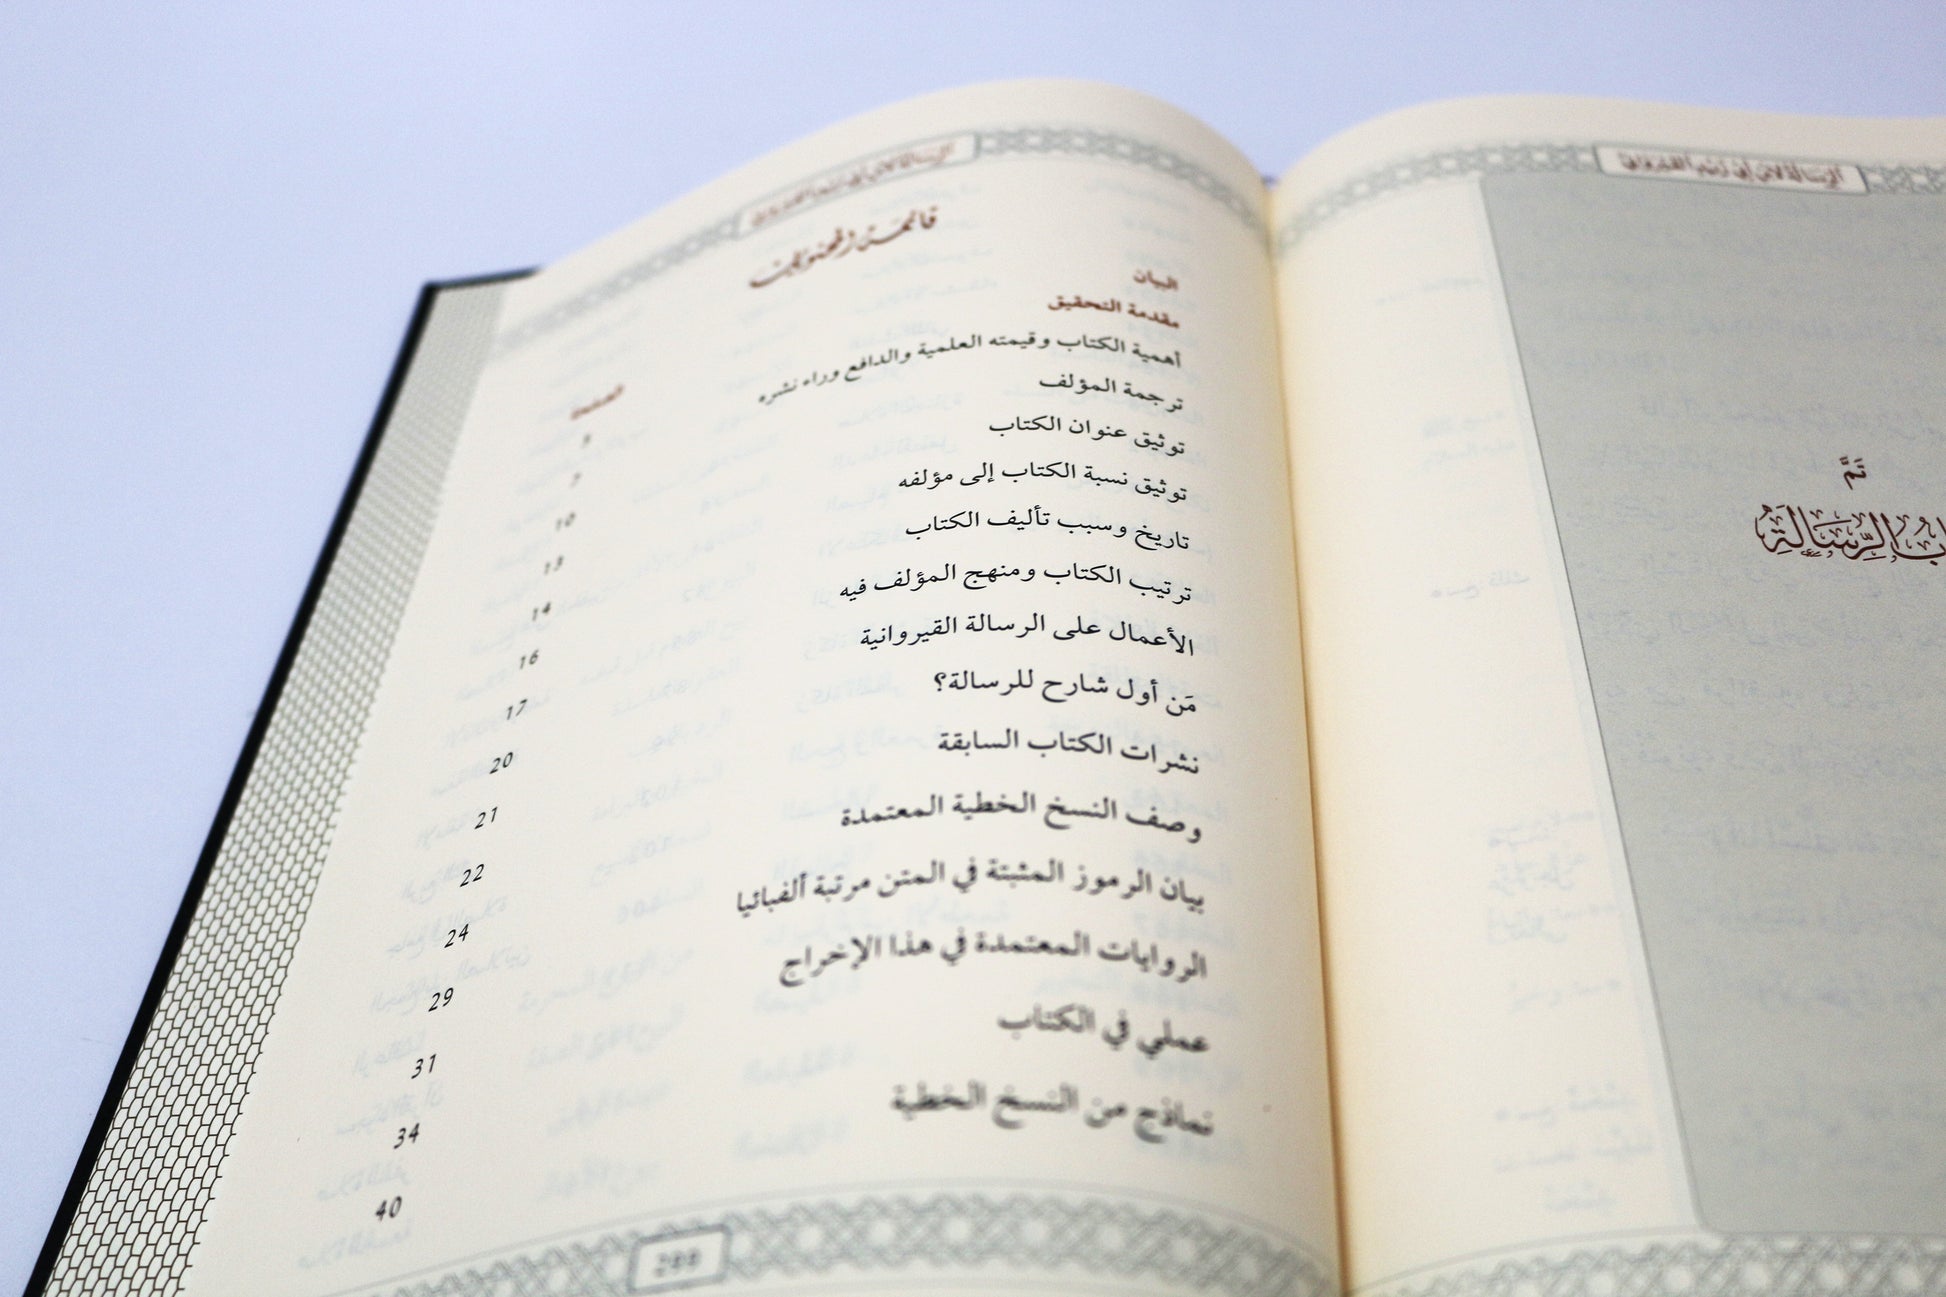 الرسالة لابن أبي زيد القيرواني
تَمَّ
الرِّسَالَةِ
الرسالة لابن أبي زيد القيرواني
قائمة المحتويات
البيان
الصفحة
مقدمة التحقيق
5
أهمية الكتاب وقيمته العلمية والدافع وراء نشره
7
ترجمة المؤلف
10
توثيق عنوان الكتاب
13
توثيق نسبة الكتاب إلى مؤلفه
14
تاريخ وسبب تأليف الكتاب
16
ترتيب الكتاب ومنهج المؤلف فيه
17
الأعمال على الرسالة القيروانية
20
مَن أول شارح للرسالة؟
21
نشرات الكتاب السابقة
22
وصف النسخ الخطية المعتمدة
24
بيان الرموز المثبتة في المتن مرتبة ألفبائيا
29
الروايات المعتمدة في هذا الإخراج
31
عملي في الكتاب
34
نماذج من النسخ الخطية
40